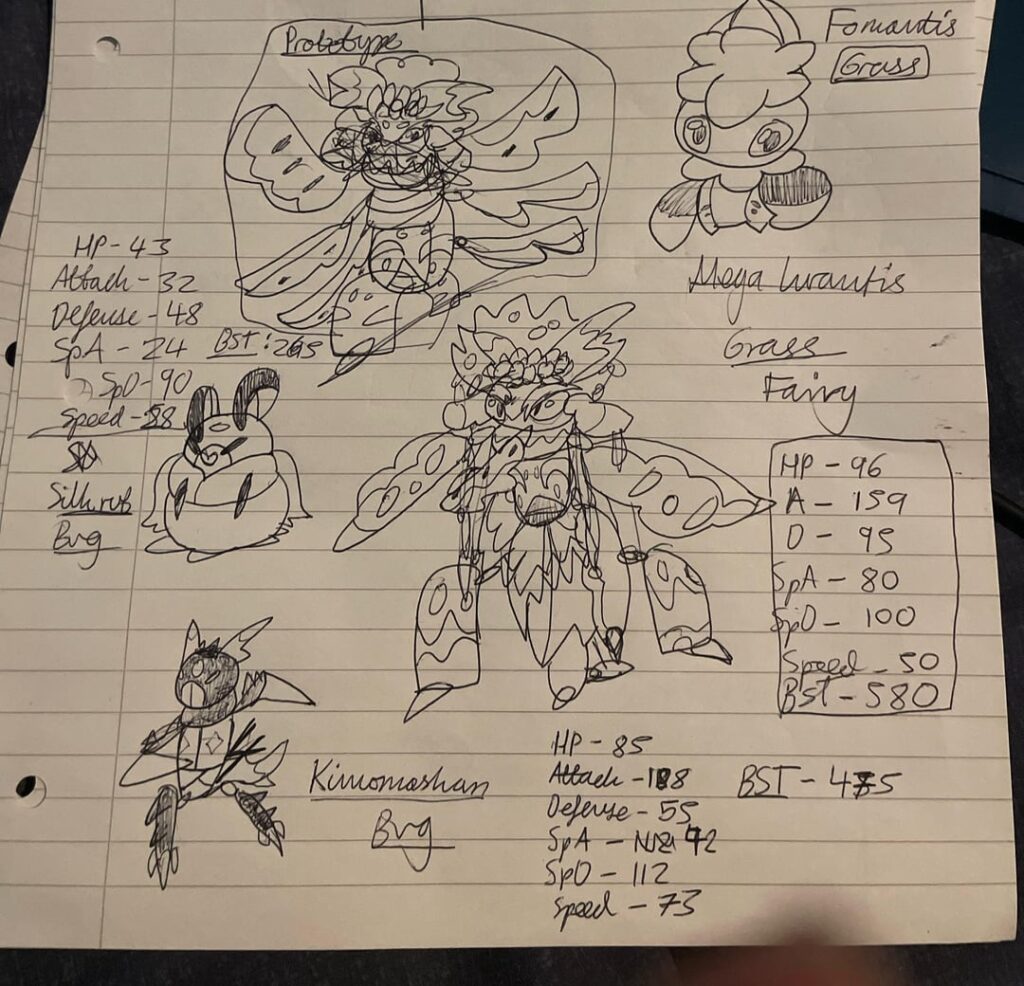 Prototype
Fomantis
Grass
HP - 43
Attack - 32
Defense - 48
SpA - 24
BST: 265
SpD - 90
Speed - 28
Silkrub
Bug
Mega Lurantis
Grass
Fairy
HP - 96
A - 159
D - 95
SpA - 80
SpD - 100
Speed - 50
BST - 580
Kimomoshan
Bug
HP - 85
Attack - 188
Defense - 55
SpA - 42
SpD - 112
Speed - 73
BST - 475